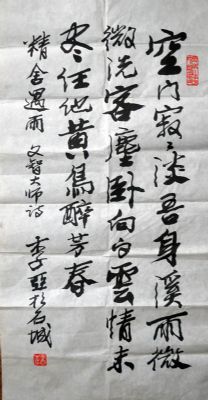 空门寂々淡吾身溪雨微
微洗客塵卧向白雲情未
尽任他黄鳥醉芳春
精舍遇雨 文智大师诗
季子亞於石城